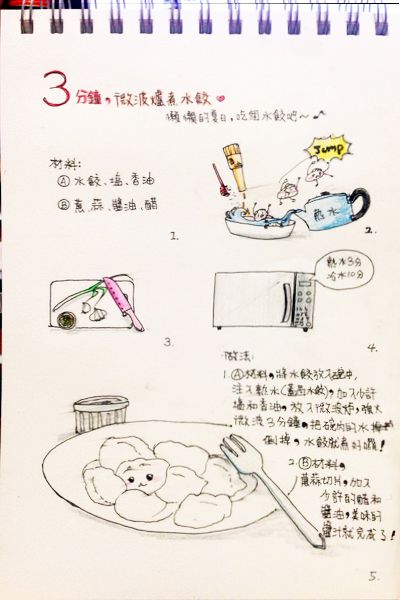 3分鐘,微波爐煮水餃
懶懶的夏日,吃個水餃吧~
材料:
Ⓐ 水餃、塩、香油
Ⓑ 蔥、蒜、醬油、醋
1.
Jump
熱水
2.
3.
熱水3分
冷水10分
4.
做法:
1. Ⓐ材料,將水餃放入碗中,
注入熱水(蓋過水餃),加入少許
塩和香油,放入微波爐,強火
微波3分鐘,把碗內的水
倒掉,水餃就煮好囉!
2. Ⓑ材料,
蔥蒜切片,加入
少許的醋和
醬油,美味的
醬汁就完成了!
5.